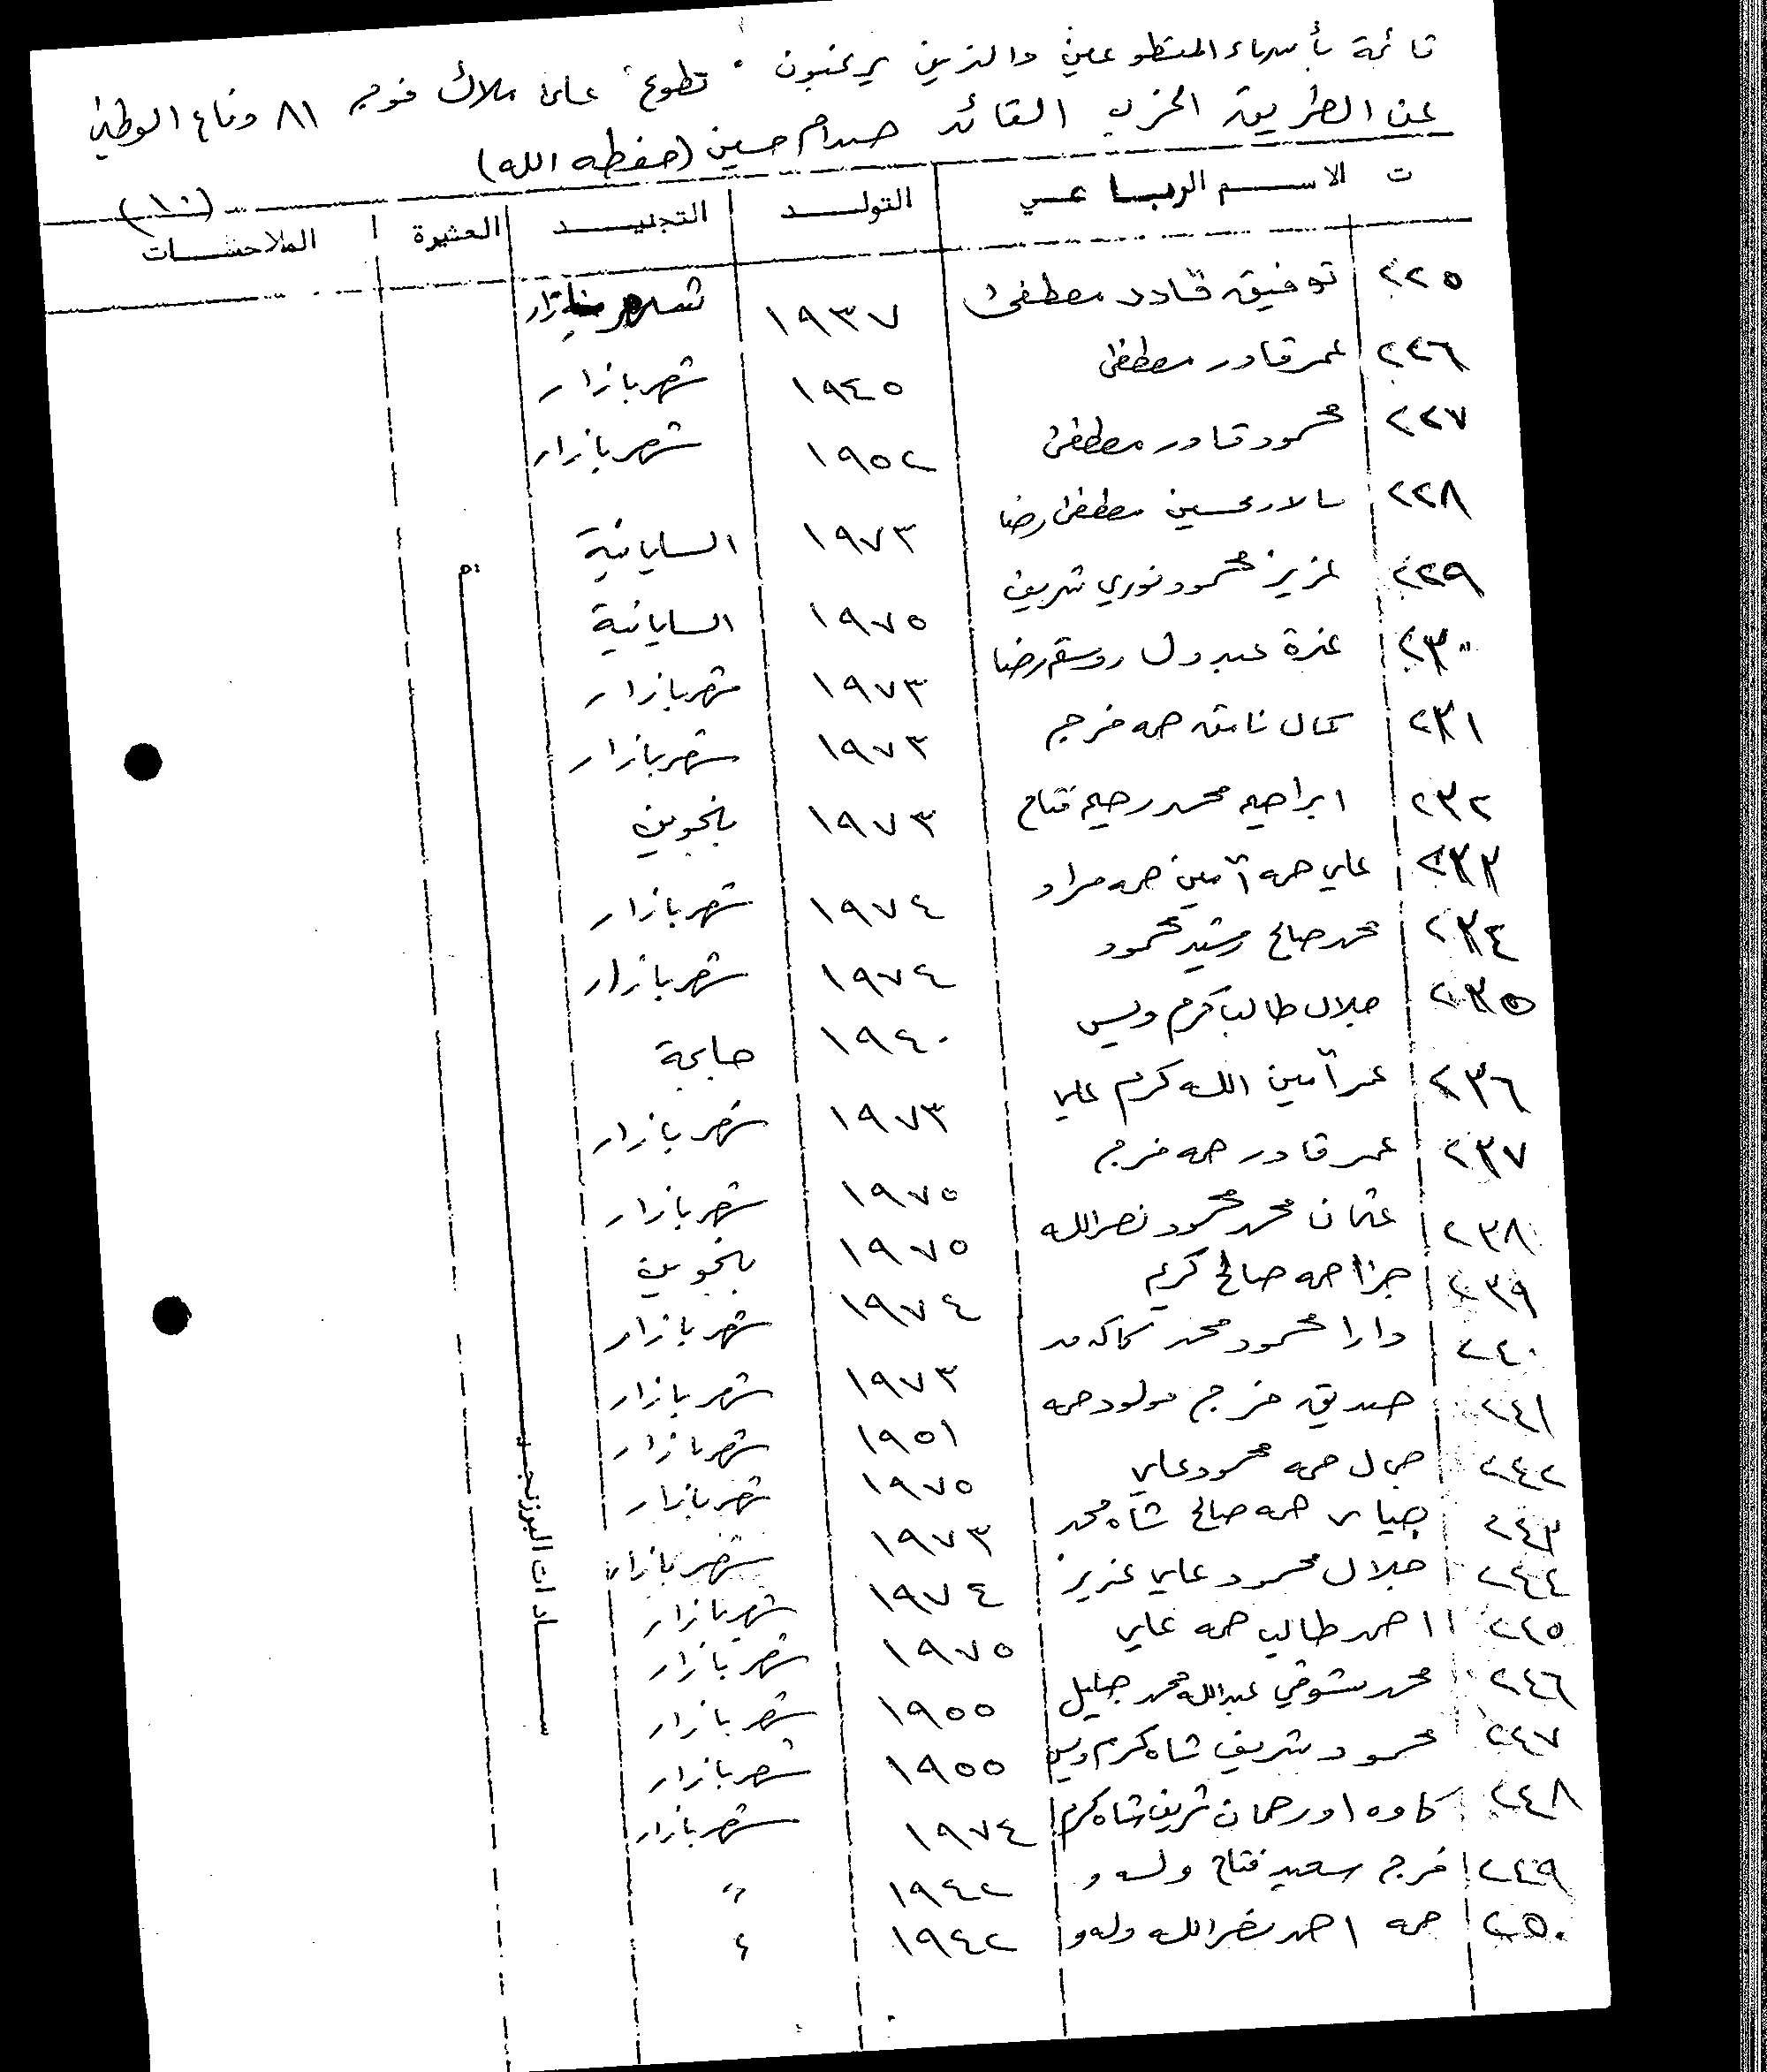 قائمة بأسماء المتطوعين والذين يرغبون "تطوع" على ملاك فوج ٨١ دفاع الوطني
عن الطريق الحزب القائد صدام حسين (حفظه الله)
(١٠)
ت الاسم الرباعي التولد التجنيد العشيرة الملاحظات
٢٢٥ توفيق قادر مصطفى ١٩٣٧ شهربازار
٢٢٦ عمر قادر مصطفى ١٩٤٥ شهربازار
٢٢٧ محمود قادر مصطفى ١٩٥٢ شهربازار
٢٢٨ سالار حسين مصطفى رضا ١٩٧٣ السليمانية
٢٢٩ عزيز محمود نوري شريف ١٩٧٥ السليمانية
٢٣٠ عزة عبدول روستم رضا ١٩٧٣ شهربازار
٢٣١ كمال نامق حمه فرج ١٩٧٣ شهربازار
٢٣٢ ابراهيم محمد رحيم فتاح ١٩٧٣ بنجوين
٢٣٣ علي حمه آمين حمه مراد ١٩٧٤ شهربازار
٢٣٤ محمد صالح رشيد محمود ١٩٧٤ شهربازار
٢٣٥ جلال طالب كرم ويس ١٩٤٠ حلبجة
٢٣٦ عمر آمين الله كرم علي ١٩٧٣ شهربازار
٢٣٧ عمر قادر حمه فرج ١٩٧٥ شهربازار
٢٣٨ عثمان محمد محمود نصرالله ١٩٧٥ بنجوين
٢٣٩ جزا حمه صالح كريم ١٩٧٤ شهربازار
٢٤٠ دارا محمود محمد كاكه مد ١٩٧٣ شهربازار
٢٤١ صديق فرج مولود حمه ١٩٥١ شهربازار
٢٤٢ جمال حمه محمود علي ١٩٧٥ شهربازار
٢٤٣ جيا حمه صالح شاه محمد ١٩٧٣ شهربازار
٢٤٤ جلال محمود علي عزيز ١٩٧٤ شهربازار
٢٤٥ احمد طالب حمه علي ١٩٧٥ شهربازار
٢٤٦ محمد شوقي عبدالله محمد جليل ١٩٥٥ شهربازار
٢٤٧ محمود شريف شاه كرم ويس ١٩٥٥ شهربازار
٢٤٨ كاوه اورحمان شريف شاه كرم ١٩٧٤ شهربازار
٢٤٩ فرج سعيد فتاح ولد و ١٩٤٢ "
٢٥٠ حمه احمد نصرالله وله و ١٩٤٢ "
سادات البرزنجه